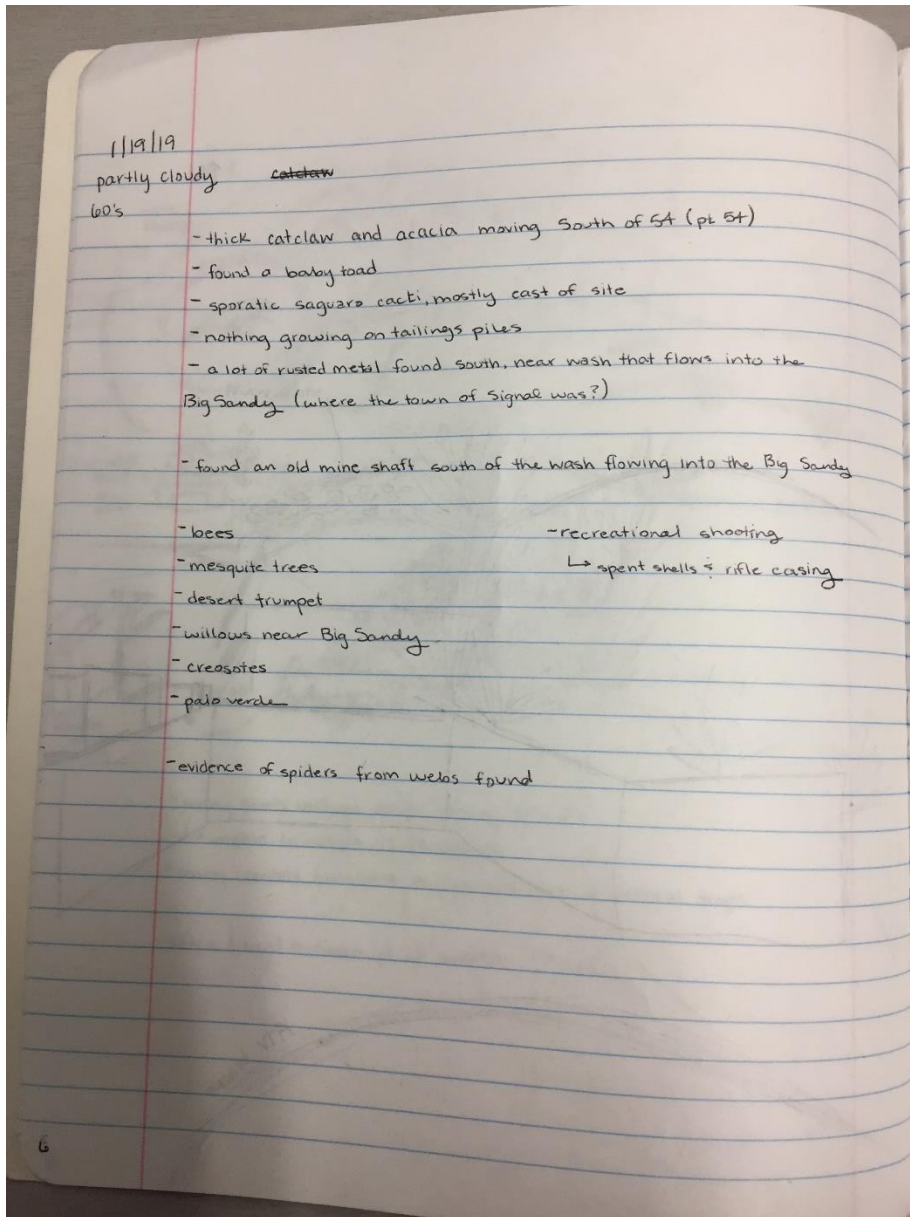 1/19/19
partly cloudy ~~catclaw~~
60's
- thick catclaw and acacia moving South of 54 (pt 54)
- found a baby toad
- sporatic saguaro cacti, mostly east of site
- nothing growing on tailings piles
- a lot of rusted metal found south, near wash that flows into the
Big Sandy (where the town of Signal was?)
- found an old mine shaft south of the wash flowing into the Big Sandy
- bees
- mesquite trees
- desert trumpet
- willows near Big Sandy
- creosotes
- palo verde
- recreational shooting
↳ spent shells & rifle casing
- evidence of spiders from webs found
6